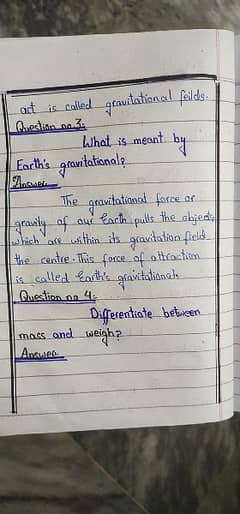 act is called gravitational feilds.
Question no 3:
What is meant by
Earth's gravitational?
Answer
The gravitational force or
gravity of our Earth pulls the objects
which are within its gravitation field
the centre. This force of attraction
is called Earth's gravitational.
Question no 4:
Differentiate between
mass and weigh?
Answer